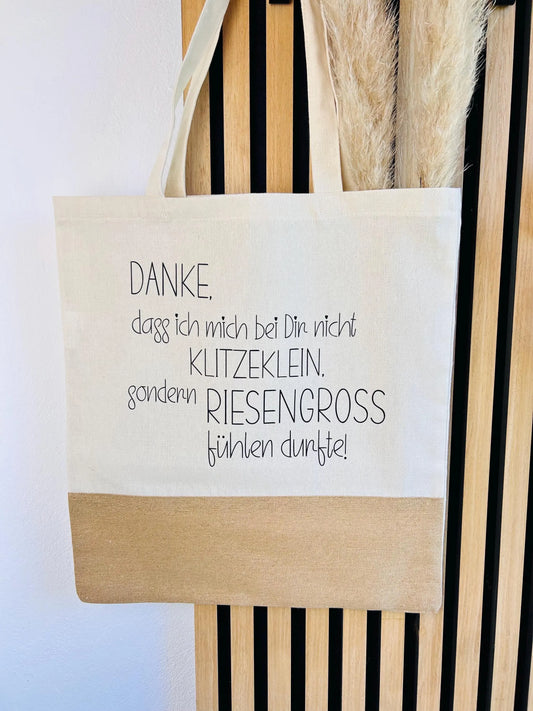 DANKE,
dass ich mich bei Dir nicht
KLITZEKLEIN,
sondern RIESENGROSS
fühlen durfte!